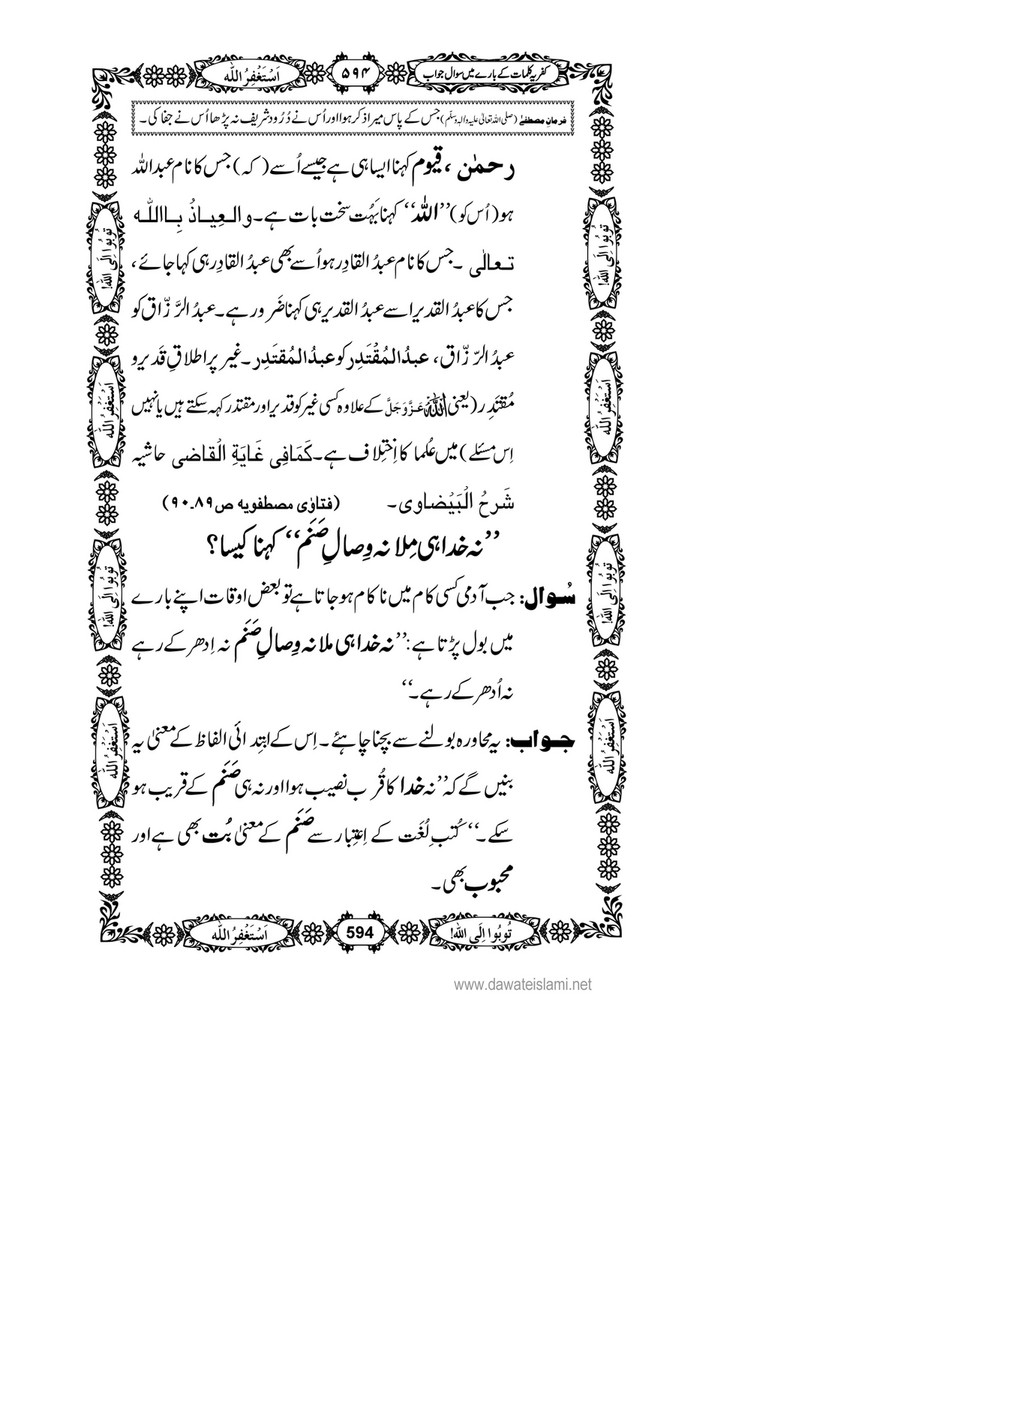 کفریہ کلمات کے بارے میں سوال جواب
۵۹۴
اَسْتَغْفِرُ اللہ
فرمانِ مصطفےٰ (صلی اللہ تعالیٰ علیہ والہٖ وسلّم) جس کے پاس میرا ذکر ہوا اور اُس نے دُرُود شریف نہ پڑھا اُس نے جفا کی۔
رحمٰن ، قیوم کہنا ایسا ہی ہے جیسے اُسے (کہ) جس کا نام عبداللہ
ہو (اُس کو) ’’اللہ‘‘ کہنا بَہُت سخت بات ہے۔ والعِیاذُ بِاللّٰہ
تعالٰی ۔ جس کا نام عبدُ القادِر ہو اُسے بھی عبدُ القادِر ہی کہا جائے،
جس کا عبدُ القدیر اسے عبدُ القدیر ہی کہنا ضَرور ہے۔ عبدُ الرَّزّاق کو
عبدُ الرّزّاق، عبدُالمُقْتَدِر کو عبدُالمُقتَدِر۔ غیر پر اطلاقِ قدیر و
مُقتَدِر (یعنی اللہ عَزَّوَجَلَّ کے علاوہ کسی غیر کو قدیر اور مقتدر کہہ سکتے ہیں یا نہیں
اِس مسئلے) میں عُلما کا اِختِلاف ہے۔ کَمَافِی غَایَۃِ الْقاضی حاشیہ
شَرحُ الْبَیْضاوی۔ (فتاوٰی مصطفویہ ص۸۹۔۹۰)
’’نہ خدا ہی مِلا نہ وِصالِ صَنَم‘‘ کہنا کیسا؟
سُوال: جب آدمی کسی کام میں ناکام ہو جاتا ہے تو بعض اوقات اپنے بارے
میں بول پڑتا ہے: ’’نہ خدا ہی ملا نہ وِصالِ صَنَم نہ اِدھر کے رہے
نہ اُدھر کے رہے۔‘‘
جواب: یہ محاورہ بولنے سے بچنا چاہئے۔ اِس کے ابتِدائی الفاظ کے معنیٰ یہ
بنیں گے کہ ’’نہ خدا کا قُرب نصیب ہوا اور نہ ہی صَنَم کے قریب ہو
سکے۔‘‘ کُتبِ لُغَت کے اِعتِبار سے صَنَم کے معنیٰ بُت بھی ہے اور
محبوب بھی۔
تُوبُوا اِلَی اللہ!
اَسْتَغْفِرُ اللہ
تُوبُوا اِلَی اللہ!
اَسْتَغْفِرُ اللہ
تُوبُوا اِلَی اللہ!
اَسْتَغْفِرُ اللہ
تُوبُوا اِلَی اللہ!
اَسْتَغْفِرُ اللہ
تُوبُوا اِلَی اللہ!
594
اَسْتَغْفِرُ اللہ
www.dawateislami.net